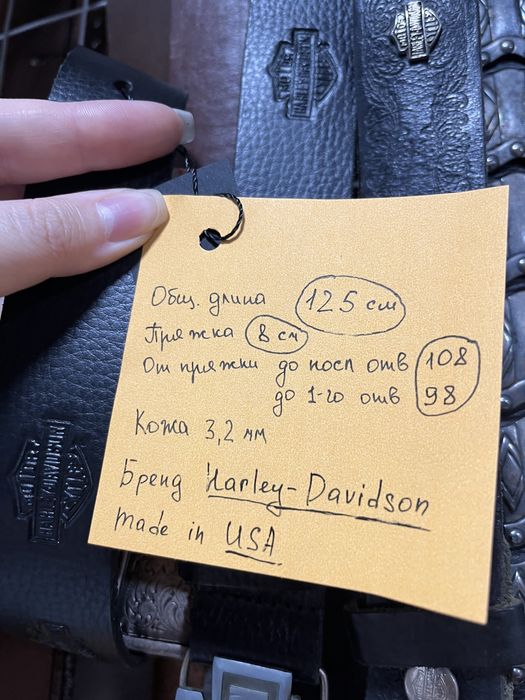 Общ. длина 125 см
Пряжка 8 см
От пряжки до посл отв 108
до 1-го отв 98
Кожа 3,2 мм
Бренд Harley-Davidson
made in USA